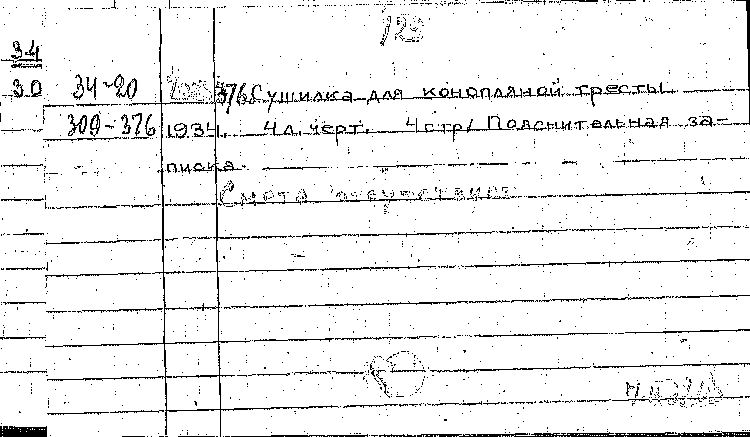 129
34
30 34-20 376 Сушилка для конопляной тресты
309-376 1934. 4 л. черт. 4 стр/ Пояснительная за-
писка.
Смета отсутствует